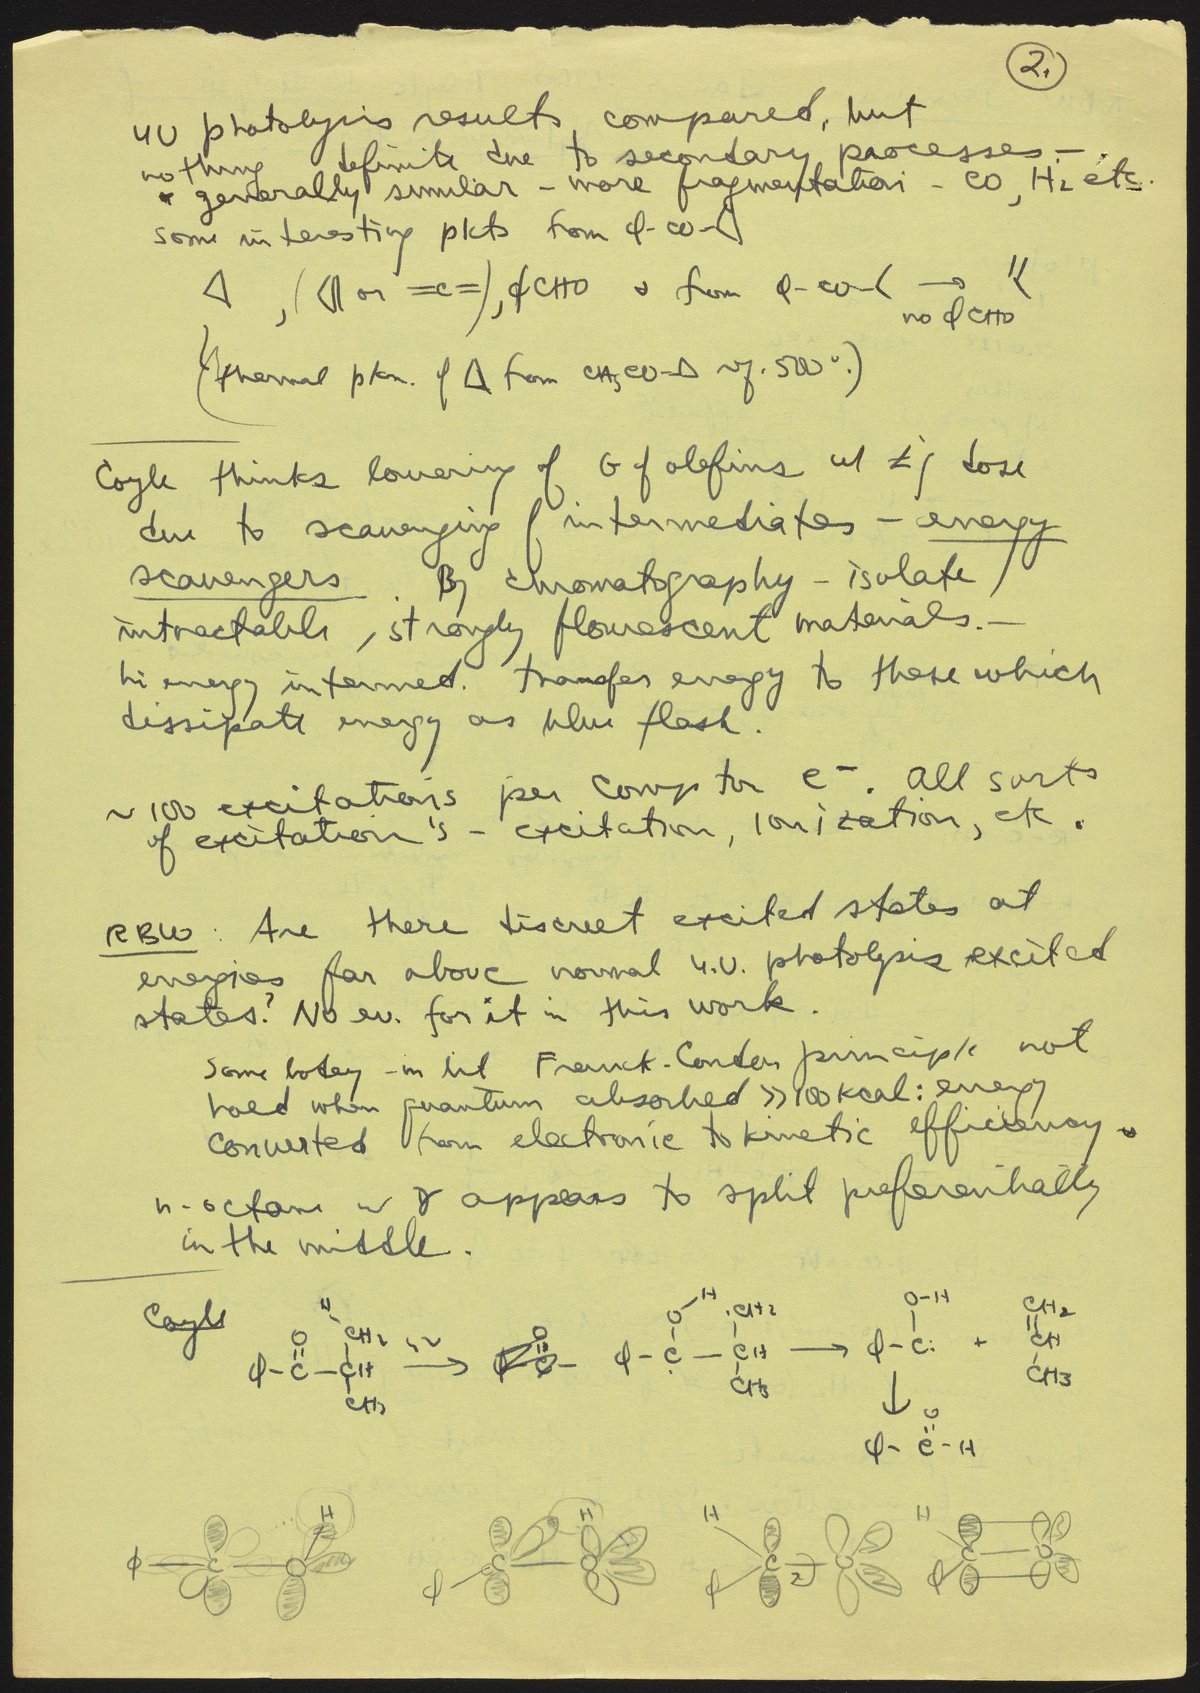 2.
UV photolysis results compared, but
nothing definite due to secondary processes -
generally similar - more fragmentation - CO, H₂ etc.
some interesting pkts from φ-CO-◁
△, (◁| or =C=), φCHO & from φ-CO-< →
no φCHO
(thermal pkn. of △ from CH₃CO-△ 500°.)
Coyle thinks lowering of G of olefins w/ dose
due to scavenging of intermediates - energy
scavengers. By chromatography - isolate
intractable, strongly flourescent materials. -
hi energy intermed. transfer energy to these which
dissipate energy as blue flash.
~ 100 excitations per Compton e⁻. All sorts
of excitation's - excitation, ionization, etc.
RBW: Are there discreet excited states at
energies far above normal u.v. photolysis excited
states? No ev. for it in this work.
Somebodey - in lit Franck-Condon principle not
hold when quantum absorbed >> 100 kcal: energy
converted from electronic to kinetic efficiency.
n-octane w γ appears to split preferentially
in the middle.
Coyle
H O-H O-H CH₂
O CH₂ hν O CH₂ CH
φ-C-CH → φ-C-CH → φ-C: + CH₃
CH₃ CH₃ ↓
O
φ-C-H
H H H H
φ C O C O C O C O
φ φ φ